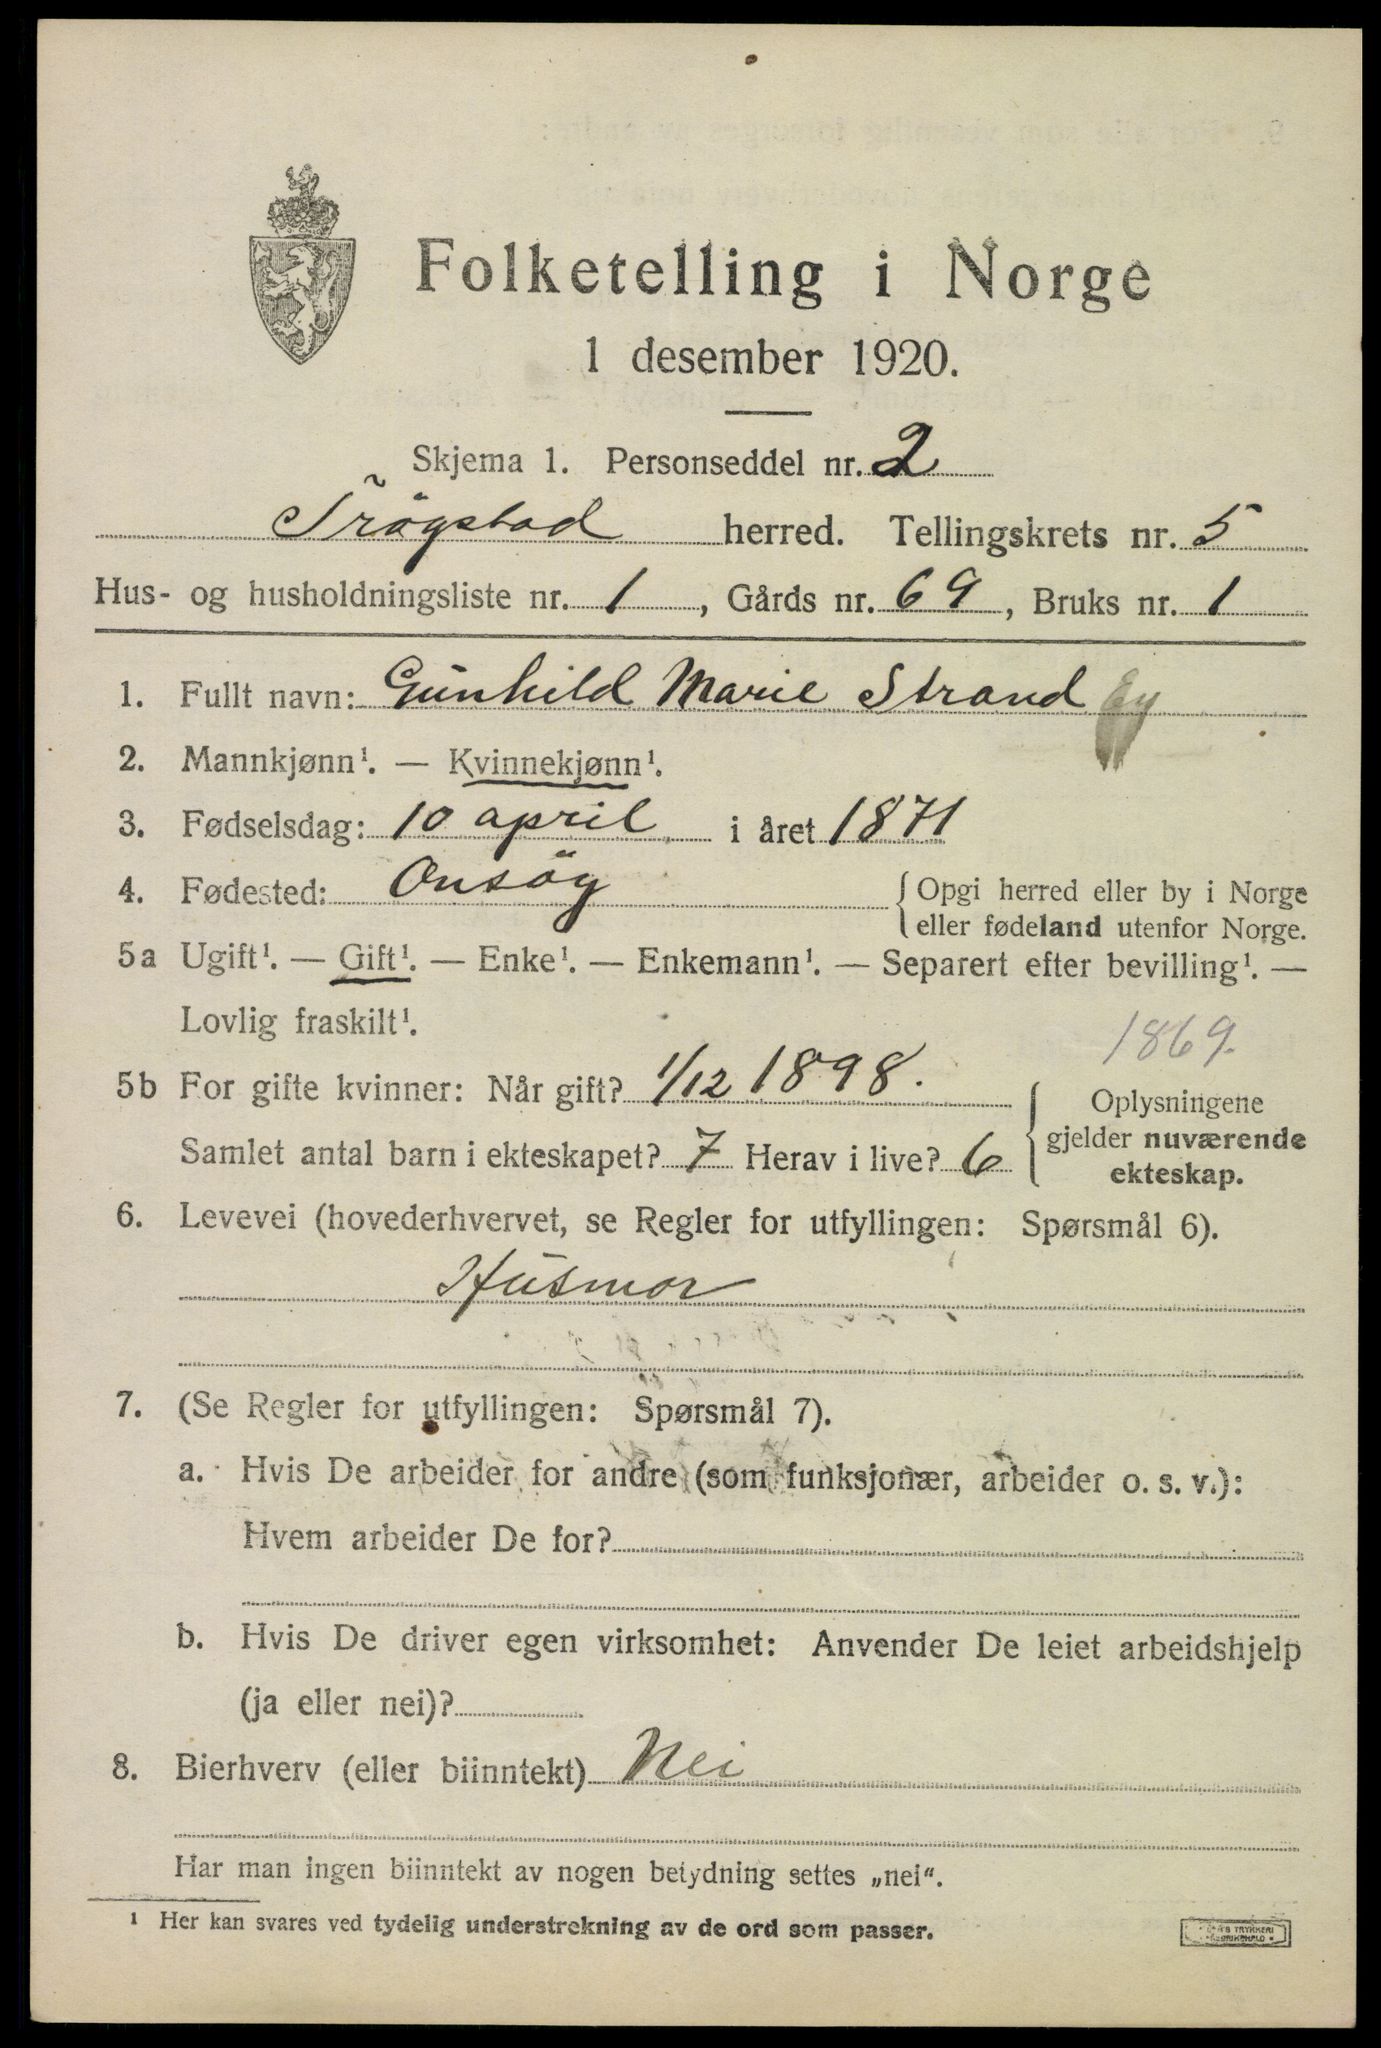 Folketelling i Norge
1 desember 1920.
Skjema 1. Personseddel nr. 2
Trögstad herred. Tellingskrets nr. 5
Hus- og husholdningsliste nr. 1, Gårds nr. 69, Bruks nr. 1
1. Fullt navn: Gunhild Marie Strand
2. Mannkjønn¹. — Kvinnekjønn¹.
3. Fødselsdag: 10 april i året 1871
4. Fødested: Onsöy { Opgi herred eller by i Norge
eller fødeland utenfor Norge.
5a Ugift¹. — Gift¹. — Enke¹. — Enkemann¹. — Separert efter bevilling¹. —
Lovlig fraskilt¹.
1869.
5b For gifte kvinner: Når gift? 1/12 1898. { Oplysningene
gjelder nuværende
ekteskap.
Samlet antal barn i ekteskapet? 7 Herav i live? 6
6. Levevei (hovederhvervet, se Regler for utfyllingen: Spørsmål 6).
Husmor
7. (Se Regler for utfyllingen: Spørsmål 7).
a. Hvis De arbeider for andre (som funksjonær, arbeider o. s. v.):
Hvem arbeider De for?
b. Hvis De driver egen virksomhet: Anvender De leiet arbeidshjelp
(ja eller nei)?
8. Bierhverv (eller biinntekt) Nei
Har man ingen biinntekt av nogen betydning settes „nei“.
¹ Her kan svares ved tydelig understrekning av de ord som passer.